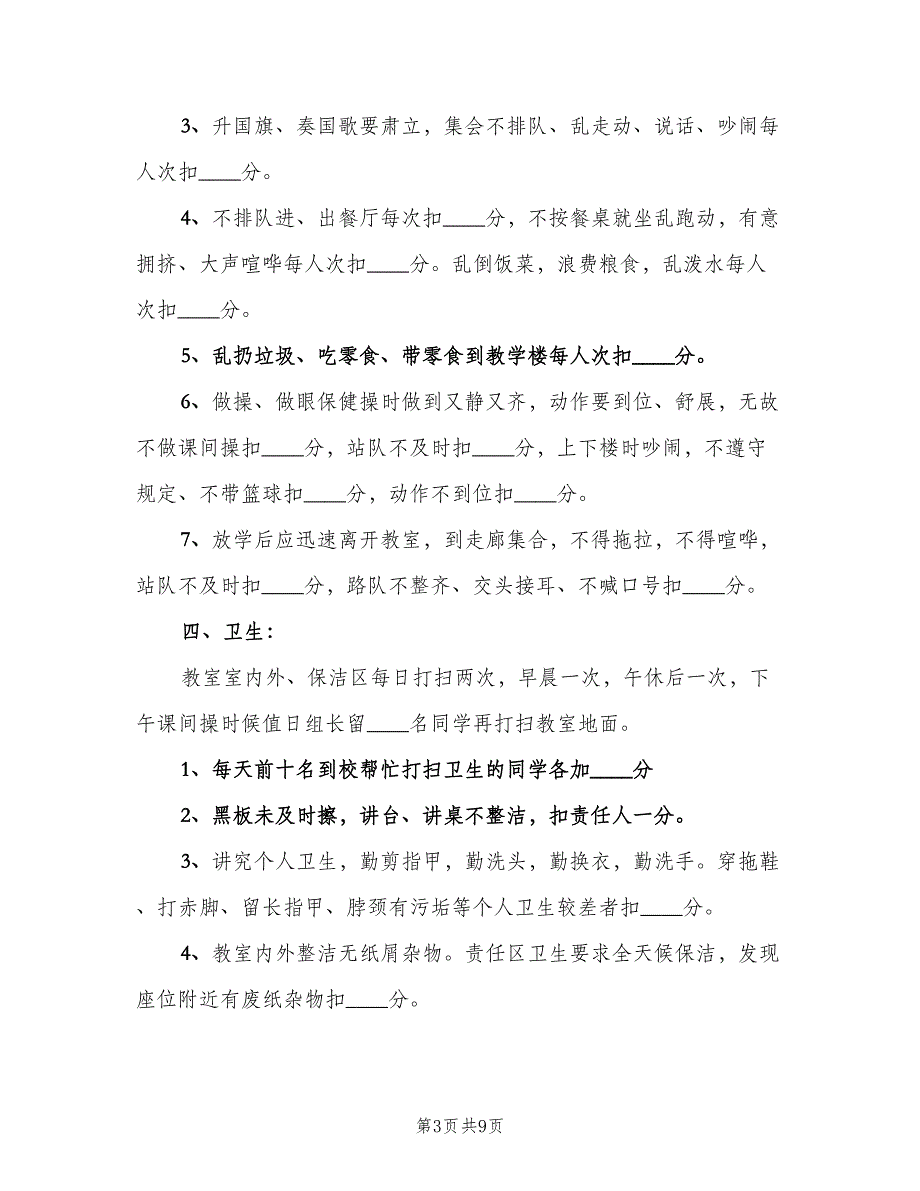 3、升国旗、奏国歌要肃立，集会不排队、乱走动、说话、吵闹每
人次扣____分。
4、不排队进、出餐厅每次扣____分，不按餐桌就坐乱跑动，有意
拥挤、大声喧哗每人次扣____分。乱倒饭菜，浪费粮食，乱泼水每人
次扣____分。
5、乱扔垃圾、吃零食、带零食到教学楼每人次扣____分。
6、做操、做眼保健操时做到又静又齐，动作要到位、舒展，无故
不做课间操扣____分，站队不及时扣____分，上下楼时吵闹，不遵守
规定、不带篮球扣____分，动作不到位扣____分。
7、放学后应迅速离开教室，到走廊集合，不得拖拉，不得喧哗，
站队不及时扣____分，路队不整齐、交头接耳、不喊口号扣____分。
四、卫生：
教室室内外、保洁区每日打扫两次，早晨一次，午休后一次，下
午课间操时候值日组长留____名同学再打扫教室地面。
1、每天前十名到校帮忙打扫卫生的同学各加____分
2、黑板未及时擦，讲台、讲桌不整洁，扣责任人一分。
3、讲究个人卫生，勤剪指甲，勤洗头，勤换衣，勤洗手。穿拖鞋
、打赤脚、留长指甲、脖颈有污垢等个人卫生较差者扣____分。
4、教室内外整洁无纸屑杂物。责任区卫生要求全天候保洁，发现
座位附近有废纸杂物扣____分。
第3页 共9页